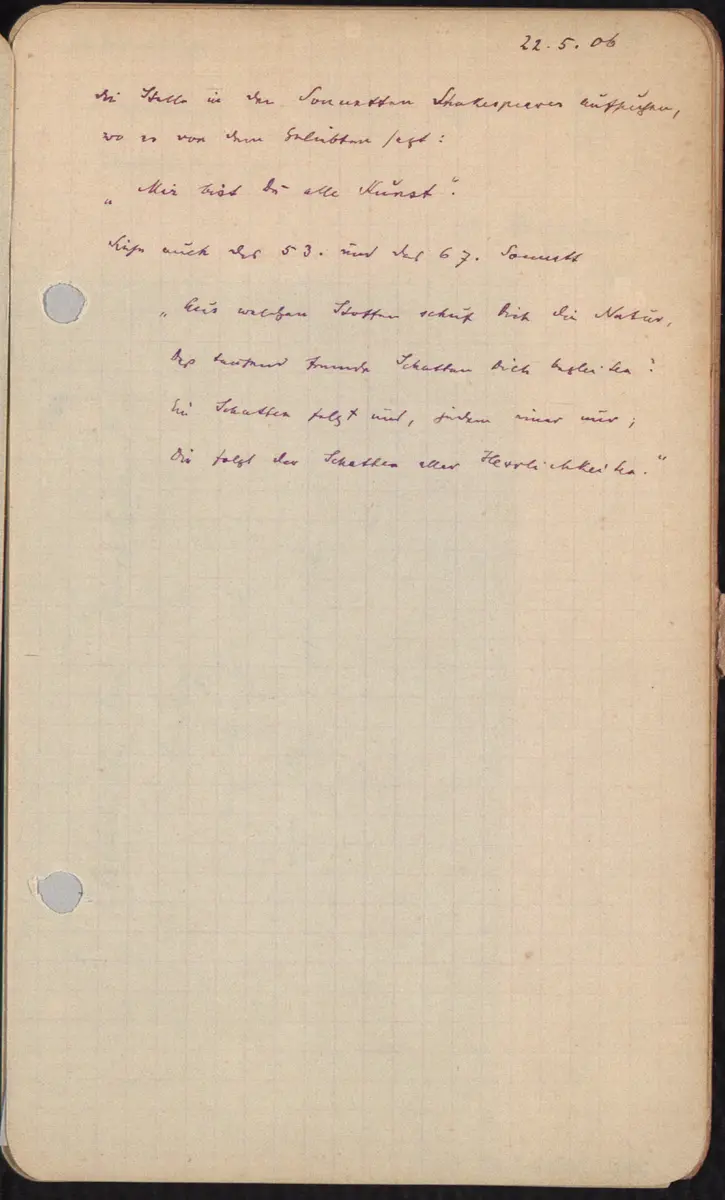 22.5.06
die Stelle in den Sonnetten Shakespeares aufsuchen,
wo er von dem Geliebten sagt:
„Mir bist Du alle Kunst".
Siehe auch das 53. und das 67. Sonnett
„Aus welchen Stoffen schuf Dich die Natur,
Dass tausend fremde Schatten Dich begleiten?
Ein Schatten folgt uns, jedem einer nur;
Dir folgt der Schatten aller Herrlichkeiten."